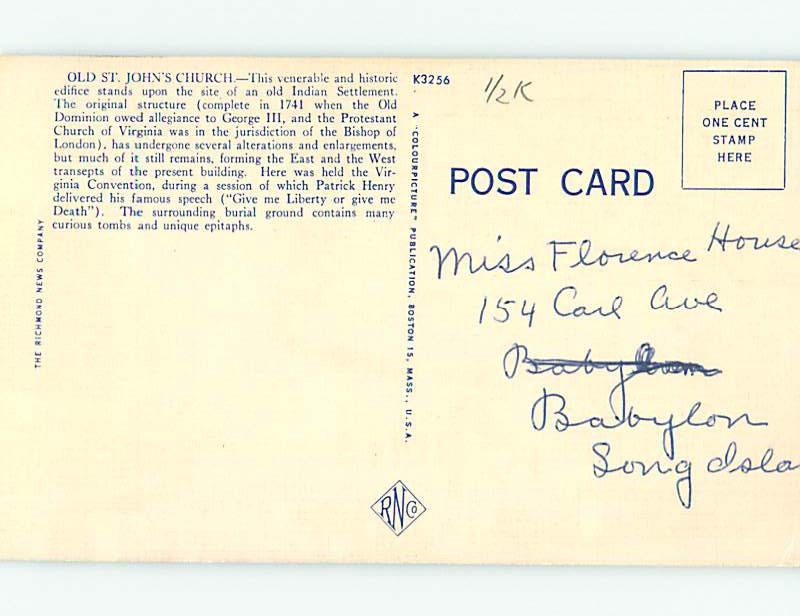 OLD ST. JOHN'S CHURCH.—This venerable and historic
edifice stands upon the site of an old Indian Settlement.
The original structure (complete in 1741 when the Old
Dominion owed allegiance to George III, and the Protestant
Church of Virginia was in the jurisdiction of the Bishop of
London), has undergone several alterations and enlargements,
but much of it still remains, forming the East and the West
transepts of the present building. Here was held the Vir-
ginia Convention, during a session of which Patrick Henry
delivered his famous speech ("Give me Liberty or give me
Death"). The surrounding burial ground contains many
curious tombs and unique epitaphs.
THE RICHMOND NEWS COMPANY
K3256
A "COLOURPICTURE" PUBLICATION, BOSTON 15, MASS., U.S.A.
RNCo
1/2K
PLACE
ONE CENT
STAMP
HERE
POST CARD
Miss Florence House
154 Carl Ave
Babylon
Long Isla